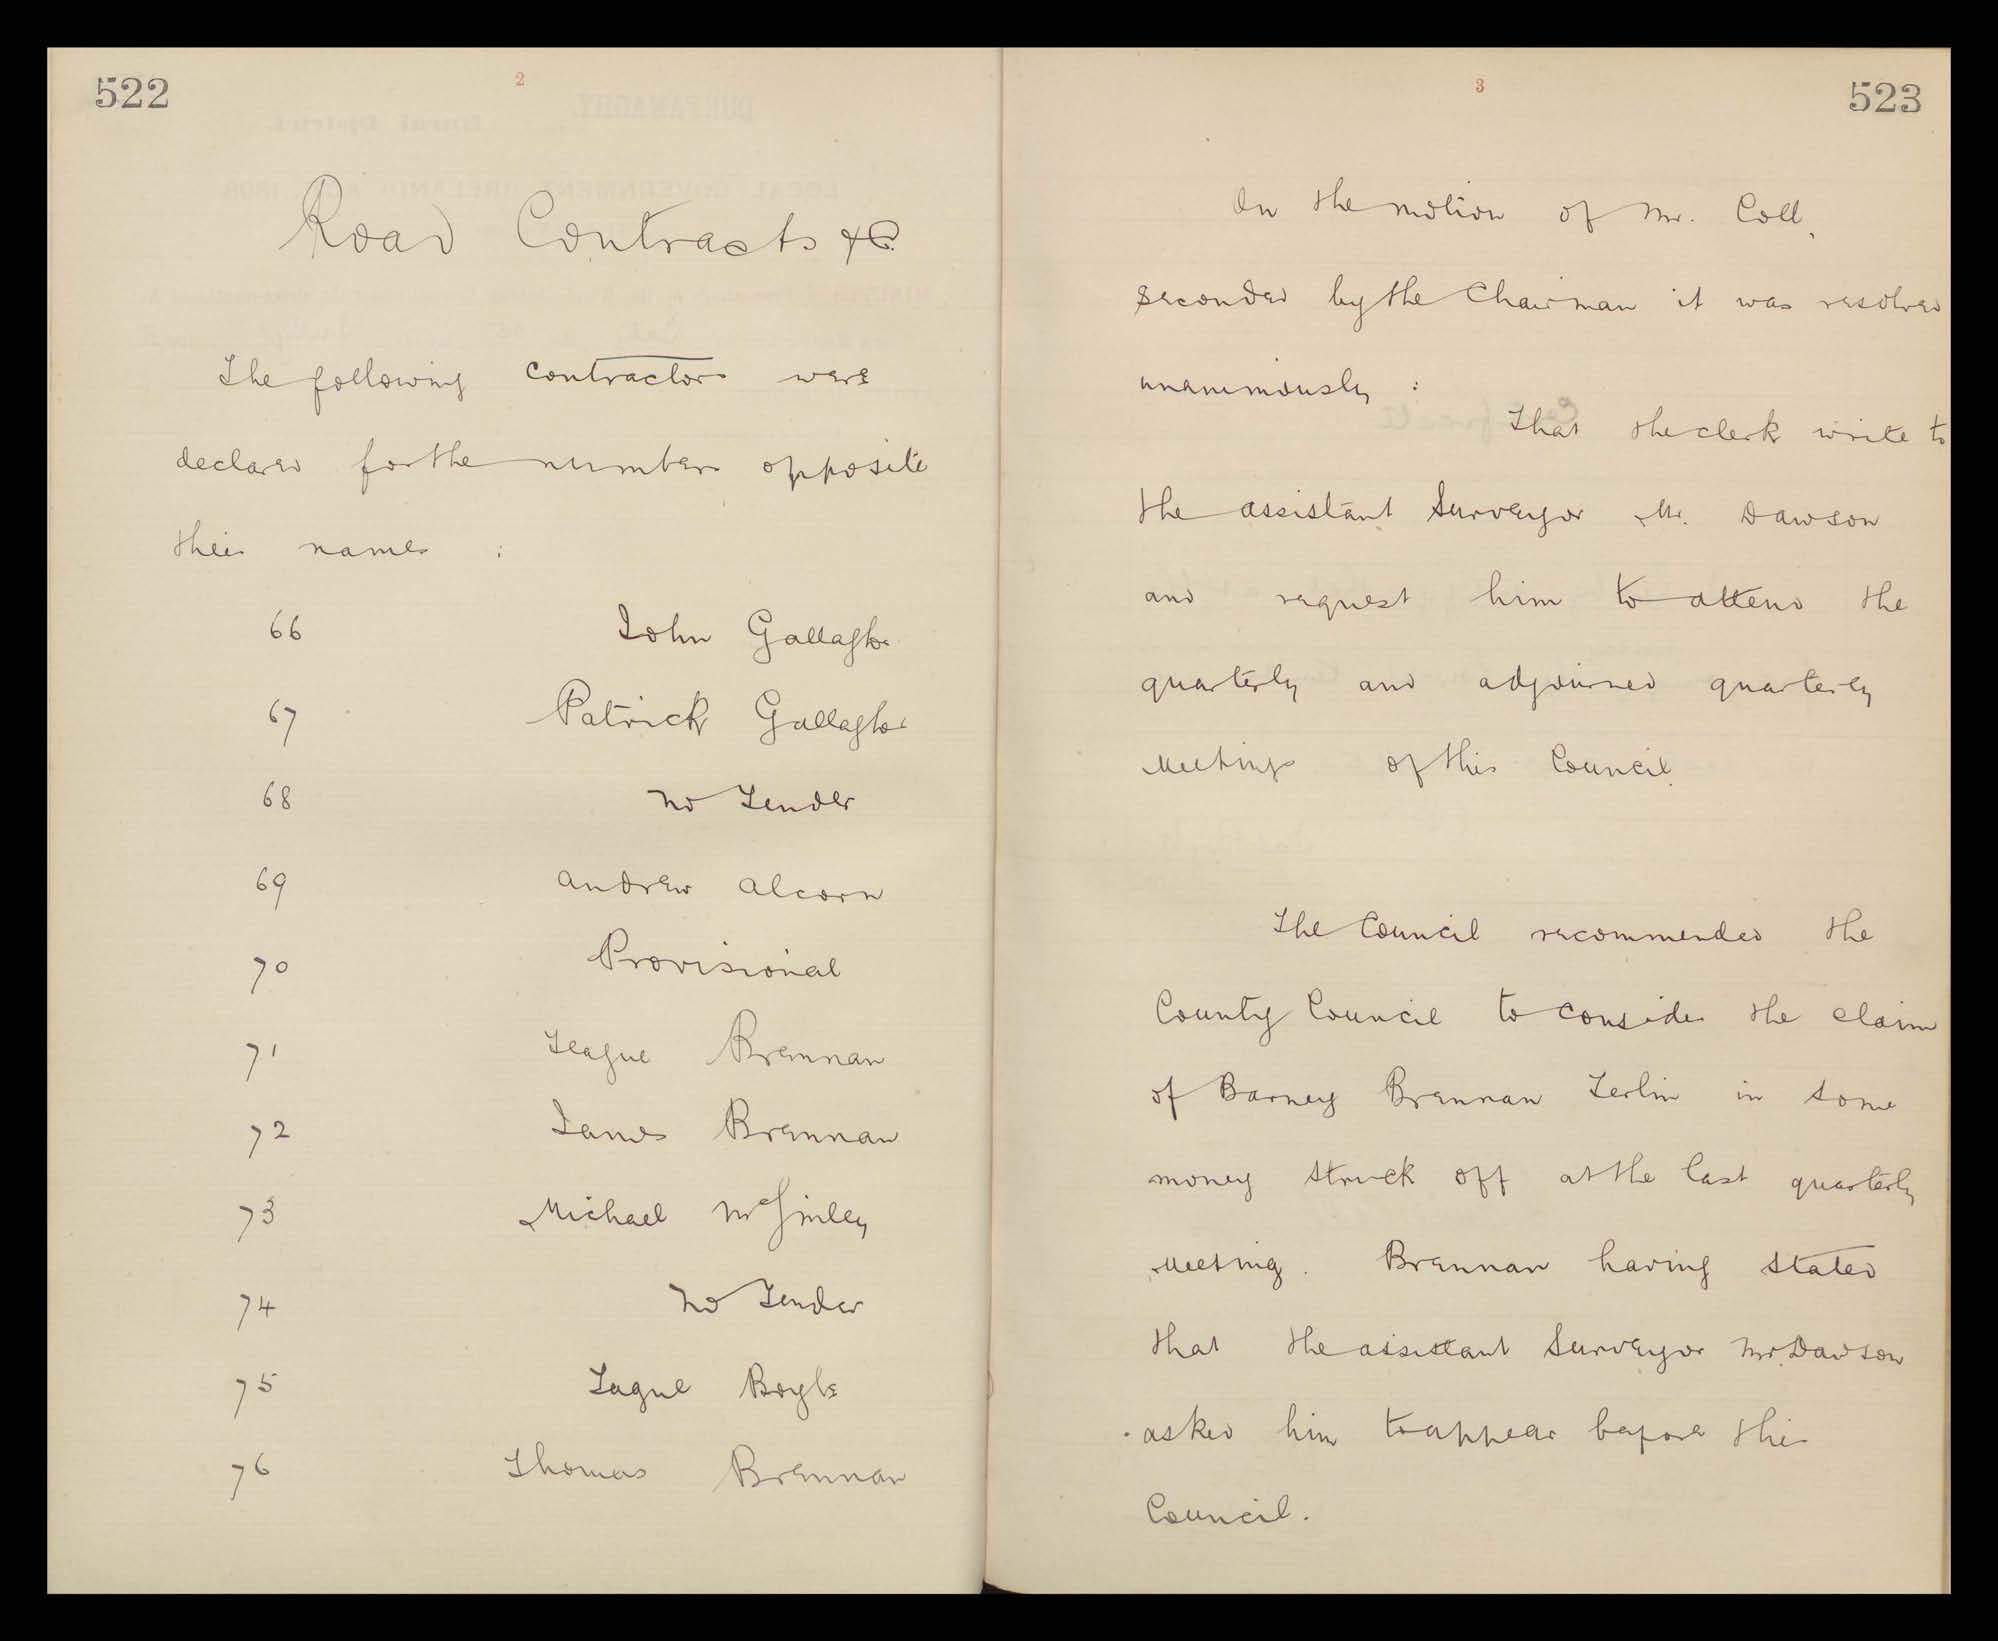 522
2
Road Contracts &c.
The following contractors were
declared for the numbers opposite
their names :
66 John Gallagher
67 Patrick Gallagher
68 No Tender
69 Andrew Alcorn
70 Provisional
71 Teague Brennan
72 James Brennan
73 Michael McGinley
74 No Tender
75 Tague Boyle
76 Thomas Brennan
3
523
On the motion of Mr. Coll,
seconded by the Chairman it was resolved
unanimously :
That the clerk write to
the assistant Surveyor Mr. Dawson
and request him to attend the
quarterly and adjourned quarterly
Meetings of this Council.
The Council recommended the
County Council to consider the claim
of Barney Brennan Terlin in some
money struck off at the last quarterly
Meeting. Brennan having stated
that the assistant Surveyor Mr. Dawson
asked him to appear before this
Council.